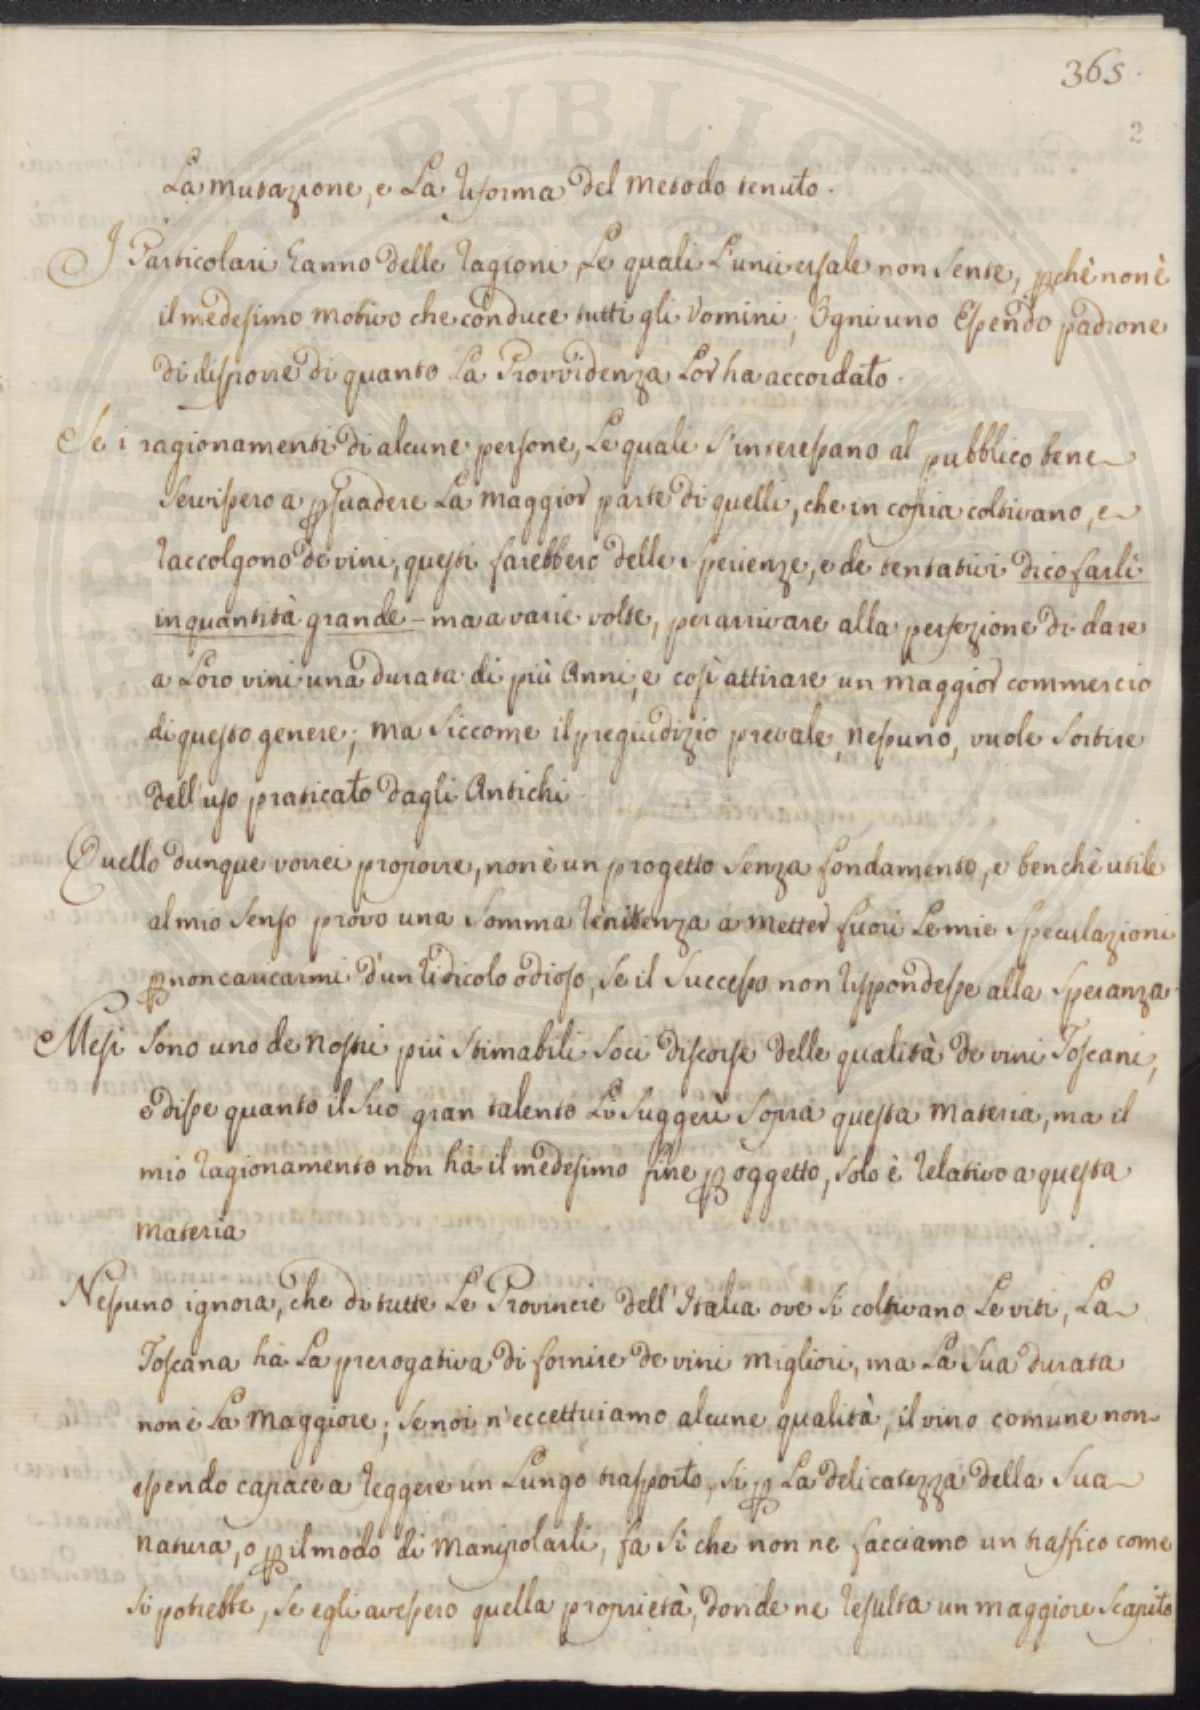 365.
2
La mutazione, e La riforma del metodo tenuto.
I Particolari hanno delle ragioni Le quali L'universale non sente, pchè non è
il medesimo motivo che conduce tutti gli Vomini; Ogni uno Essendo padrone
di disporre di quanto La Provvidenza Lor ha accordato.
Se i ragionamenti di alcune persone, Le quali s'interessano al pubblico bene
servissero a psuadere La maggior parte di quelli, che in copia coltivano, e
raccolgono de vini, questi farebbero delle sperienze, e de tentativi dico farli
in quantità grande - ma a varie volte, per arrivare alla perfezione di dare
a Loro vini una durata di più Anni, e così attirare un maggior commercio
di questo genere; ma siccome il pregiudizio prevale, nessuno, vuole sortire
dell'uso praticato dagli Antichi.
Quello dunque vorrei proporre, non è un progetto senza fondamento, e benchè utile
al mio senso provo una somma renitenza a metter fuori Le mie speculazioni
p non caricarmi d'un ridicolo odioso, se il successo non rispondesse alla speranza.
Mesi sono uno de nostri più stimabili soci discorse delle qualità de vini Toscani,
e disse quanto il suo gran talento Lo suggerì sopra questa materia, ma il
mio ragionamento non ha il medesimo fine p oggetto, solo è relativo a questa
materia
Nessuno ignora, che di tutte Le Provincie dell'Italia ove si coltivano Le viti, La
Toscana ha La prerogativa di fornire de vini migliori, ma La sua durata
non è La maggiore; se noi n'eccettuiamo alcune qualità, il vino comune non
essendo capace a reggere un Lungo trasporto, si p La delicatezza della sua
natura, o p il modo di manipolarli, fa sì che non ne facciamo un traffico come
si potrebbe, se egli avessero quella proprietà, donde ne resulta un maggiore scapito